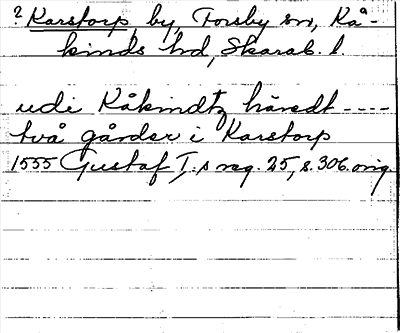 ? Karstorp, by, Forsby sn, Kå-
kinds hd, Skarab. l.
udi Kåkindtz häredt ----
två gårdar i Karstorp
1555 Gustaf I:s reg. 25, s. 306. orig.